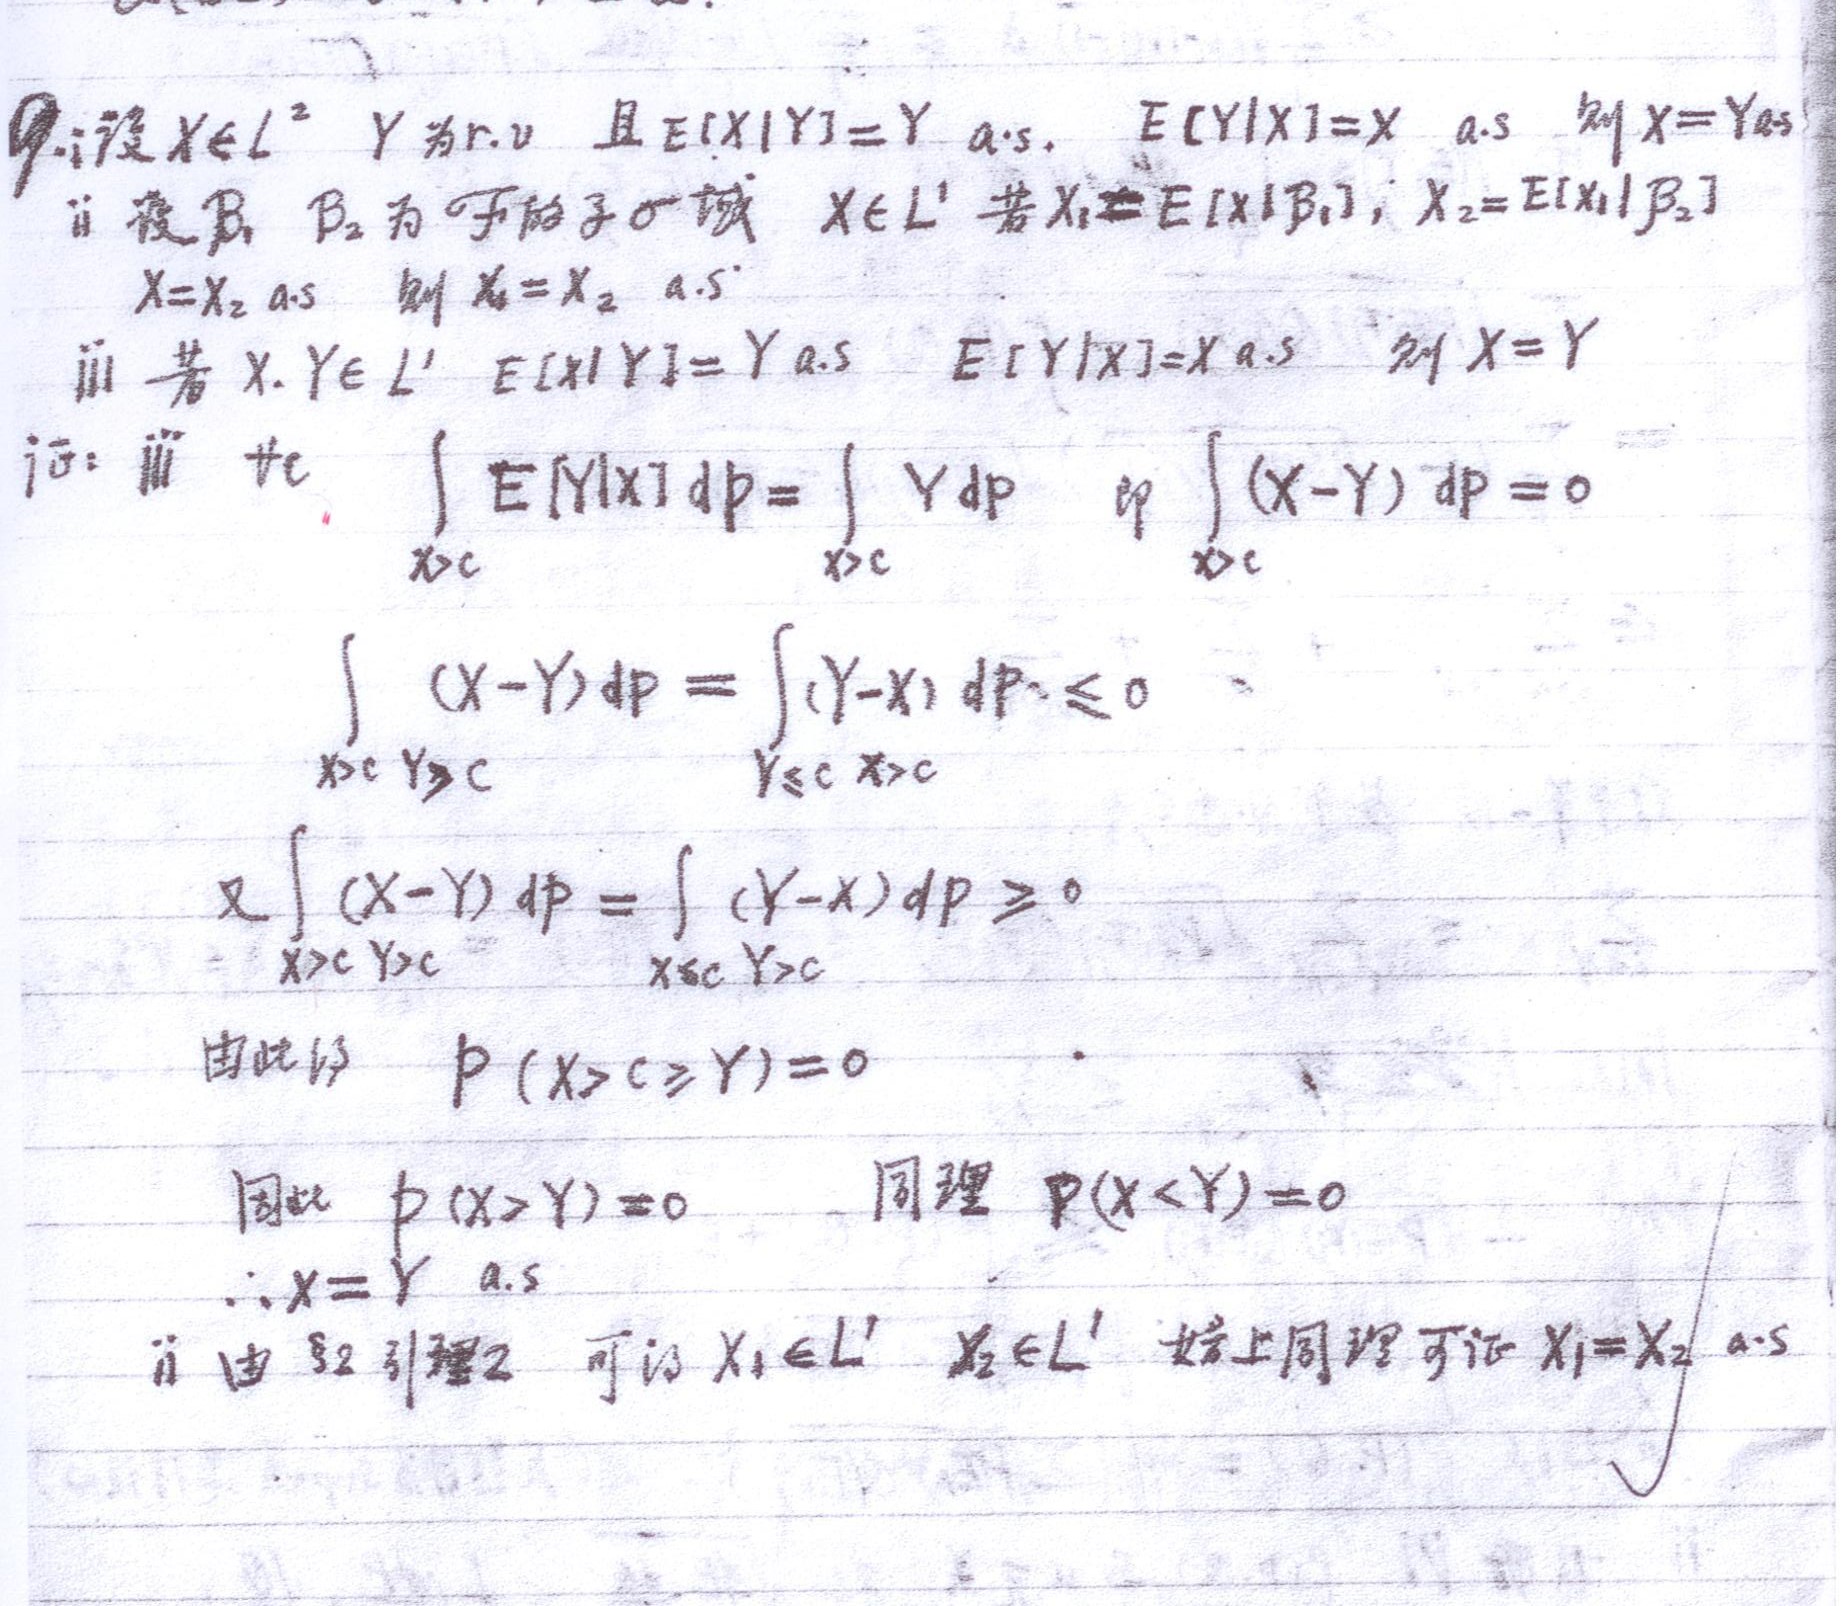 9. i 设 X∈L² Y为r.v 且E[X|Y]=Y a.s. E[Y|X]=X a.s 则 X=Y a.s
ii 设 β₁ β₂ 为 F的子σ域 X∈L¹ 若X₁=E[X|β₁], X₂=E[X₁|β₂]
X=X₂ a.s 则 X₁=X₂ a.s
iii 若 X.Y∈L¹ E[X|Y]=Y a.s E[Y|X]=X a.s 则 X=Y
证: iii ∀c ∫_{X>c} E[Y|X]dp = ∫_{X>c} Ydp 即 ∫_{X>c} (X-Y)dp=0
∫_{X>c Y≥c} (X-Y)dp = ∫_{Y≤c X>c} (Y-X)dp ≤0
又∫_{X>c Y>c} (X-Y)dp = ∫_{X≤c Y>c} (Y-X)dp ≥0
由此得 p(X>c≥Y)=0
因此 p(X>Y)=0 同理 p(X<Y)=0
∴X=Y a.s
ii 由 §2 引理2 可得 X₁∈L¹ X₂∈L¹ 如上同理可证 X₁=X₂ a.s